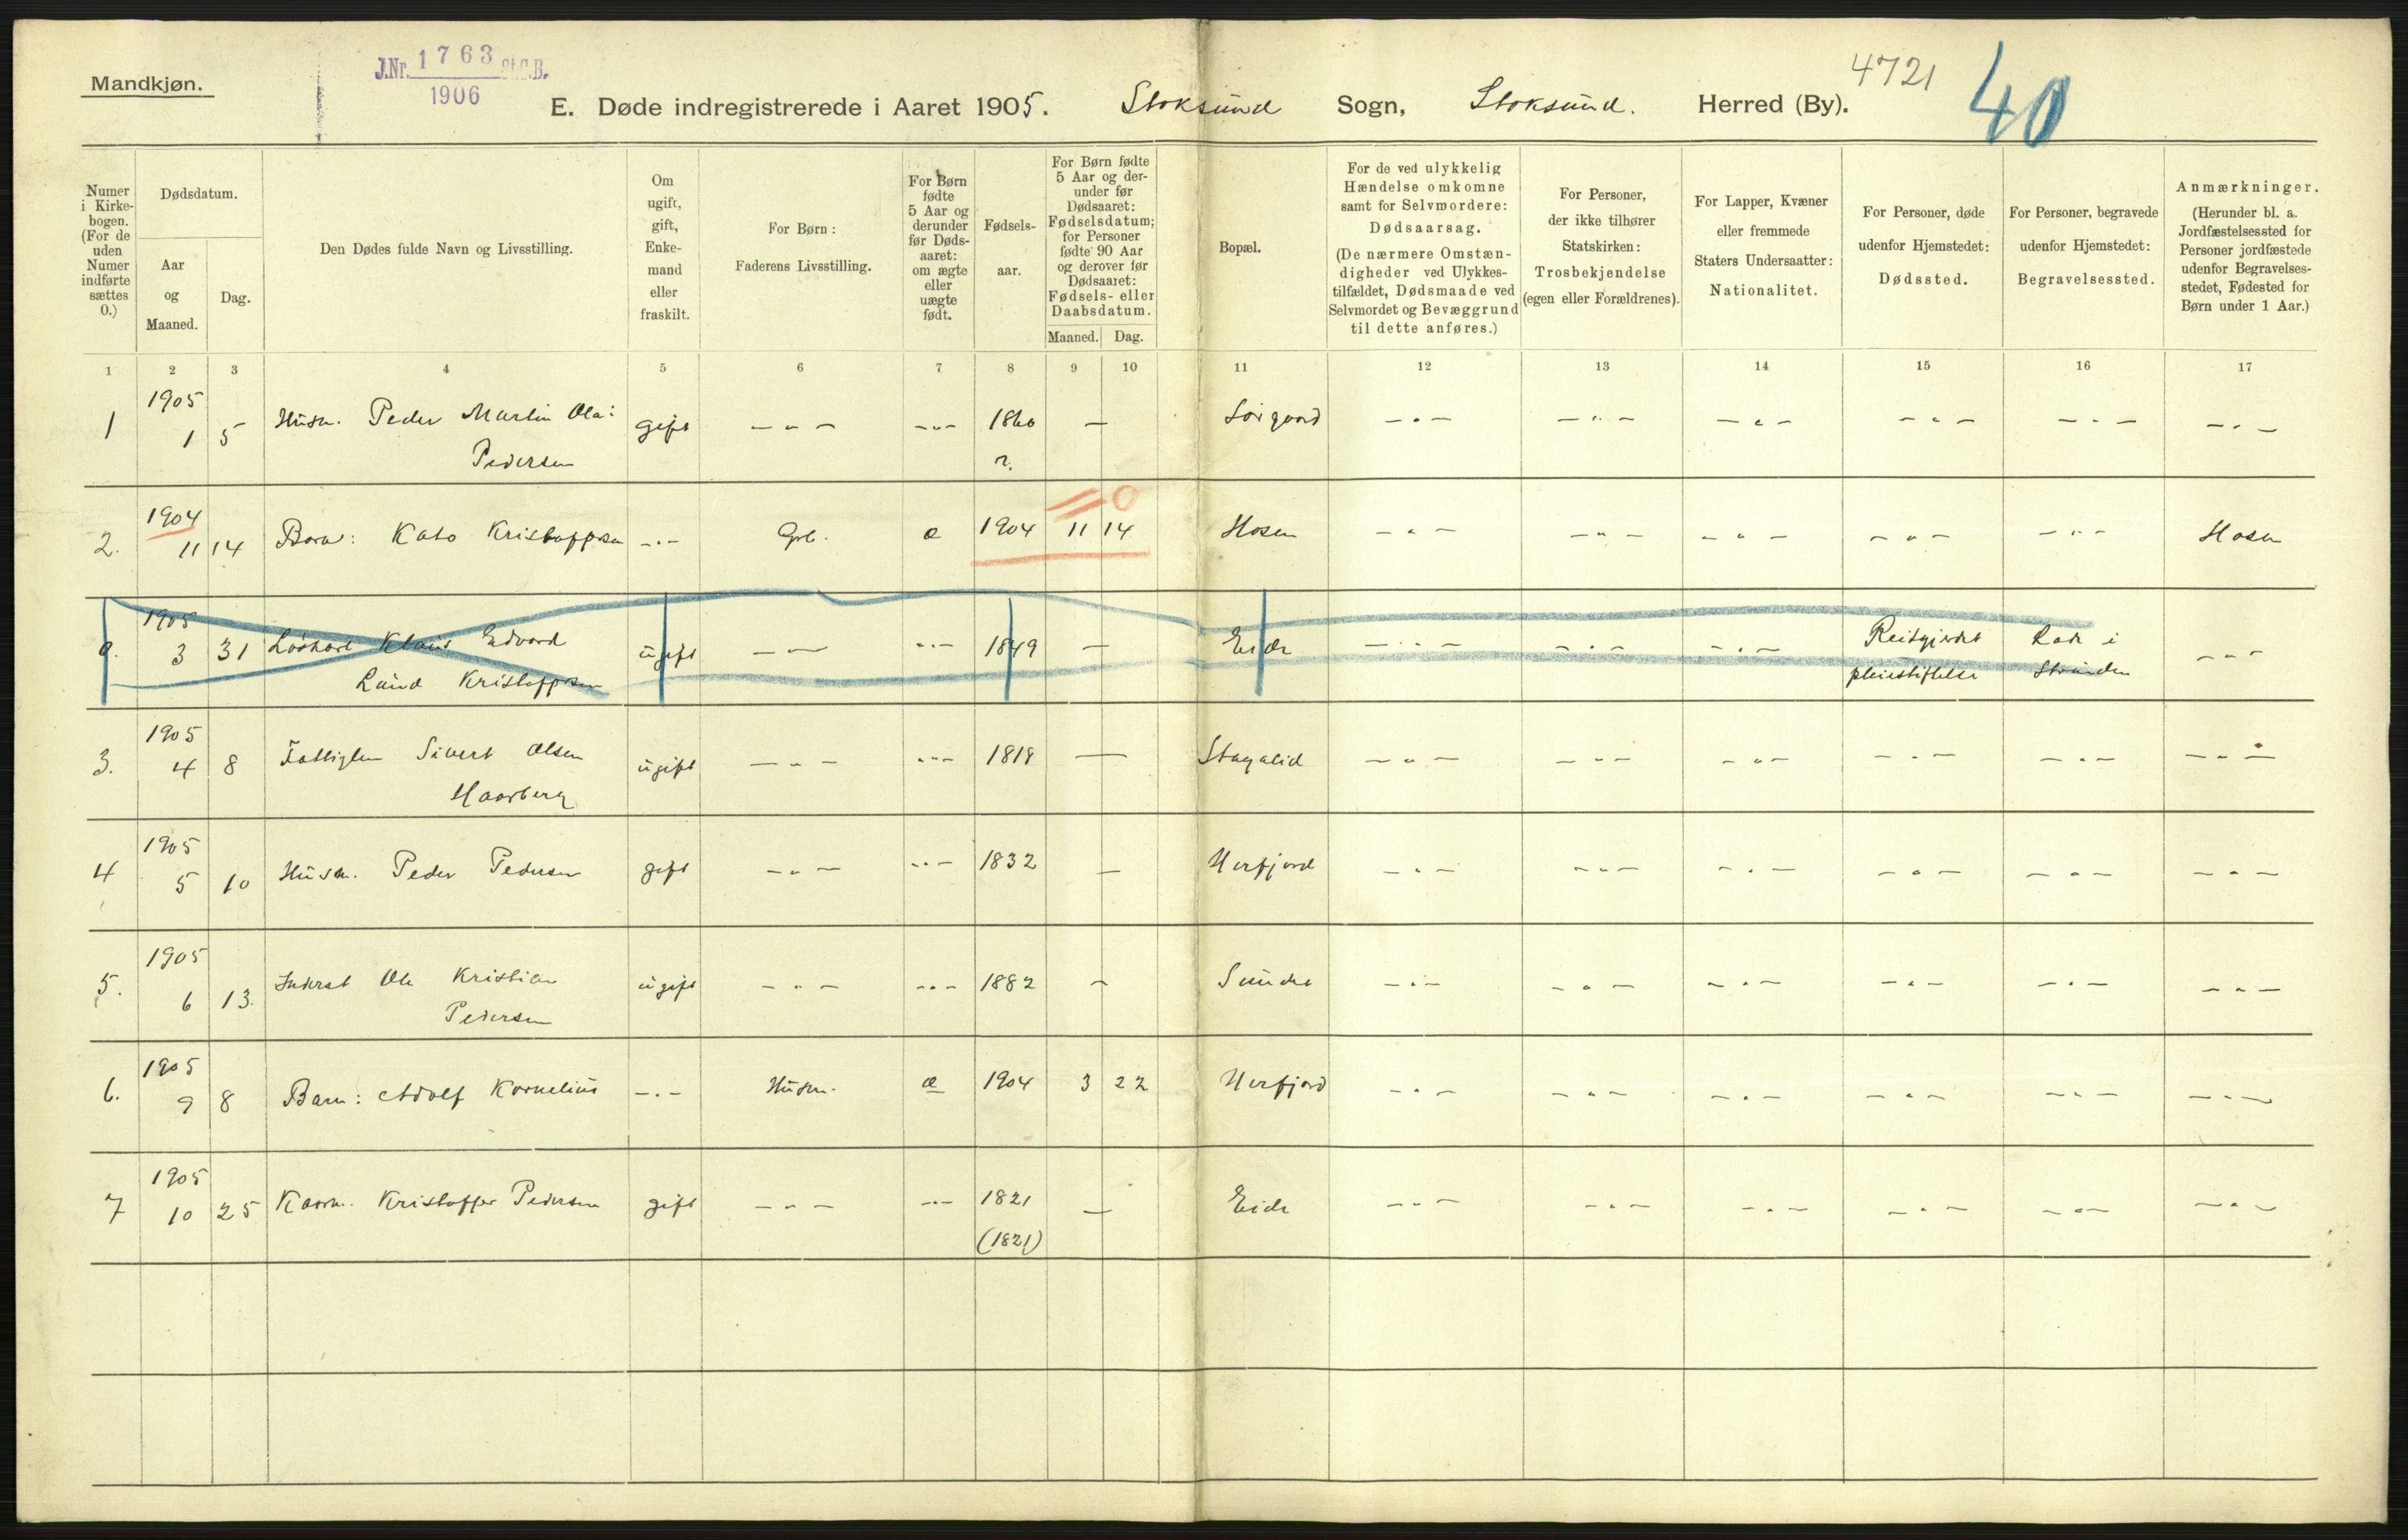 Mandkjøn.
J.Nr. 1763 St.C.B.
1906
E. Døde indregistrerede i Aaret 1905. Stoksund Sogn, Stoksund. Herred (By).
4721
40
Numer i Kirkebogen. (For de uden Numer indførte sættes 0.)
Dødsdatum.
Aar og Maaned.
Dag.
Den Dødes fulde Navn og Livsstilling.
Om ugift, gift, Enkemand eller fraskilt.
For Børn: Faderens Livsstilling.
For Børn fødte 5 Aar og derunder før Dødsaaret: om ægte eller uægte født.
Fødselsaar.
For Børn fødte 5 Aar og derunder før Dødsaaret: Fødselsdatum; for Personer fødte 90 Aar og derover før Dødsaaret: Fødsels- eller Daabsdatum.
Maaned. Dag.
Bopæl.
For de ved ulykkelig Hændelse omkomne samt for Selvmordere: Dødsaarsag. (De nærmere Omstændigheder ved Ulykkestilfældet, Dødsmaade ved Selvmordet og Bevæggrund til dette anføres.)
For Personer, der ikke tilhører Statskirken: Trosbekjendelse (egen eller Forældrenes).
For Lapper, Kvæner eller fremmede Staters Undersaatter: Nationalitet.
For Personer, døde udenfor Hjemstedet: Dødssted.
For Personer, begravede udenfor Hjemstedet: Begravelsessted.
Anmærkninger. (Herunder bl. a. Jordfæstelsessted for Personer jordfæstede udenfor Begravelsesstedet, Fødested for Børn under 1 Aar.)
1 2 3 4 5 6 7 8 9 10 11 12 13 14 15 16 17
1 1905 1 5 Husm. Peder Martin Ola: Pedersen gift - " - - " - 1860 — Sørgaard - " - - " - - " - - " - - " - - " -
2. 1904 11 14 Barn: Kato Kristoffersen - " - Grb. æ 1904 11 14 Hosen - " - - " - - " - - " - - " - Hosen
0
0. 1905 3 31 Løskarl Klaus Edvard Lund Kristoffersen ugift - " - - " - 1849 — Eide - " - - " - - " - Reitgjerdet pleiestiftelse Lade i Strinden - " -
3. 1905 4 8 Fattiglem Sivert Olsen Haarberg ugift - " - - " - 1818 — Stagalid - " - - " - - " - - " - - " - - " -
4 1905 5 10 Husm. Peder Pedersen gift - " - - " - 1832 — Herfjord - " - - " - - " - - " - - " - - " -
5. 1905 6 13. Inderst Ole Kristian Pedersen ugift - " - - " - 1882 — Sundet - " - - " - - " - - " - - " - - " -
6. 1905 9 8 Barn: Adolf Kornelius - " - Husm. æ 1904 3 22 Herfjord - " - - " - - " - - " - - " - - " -
7 1905 10 25 Kaarm. Kristoffer Pedersen gift - " - - " - 1821 (1821) — Eide - " - - " - - " - - " - - " - - " -